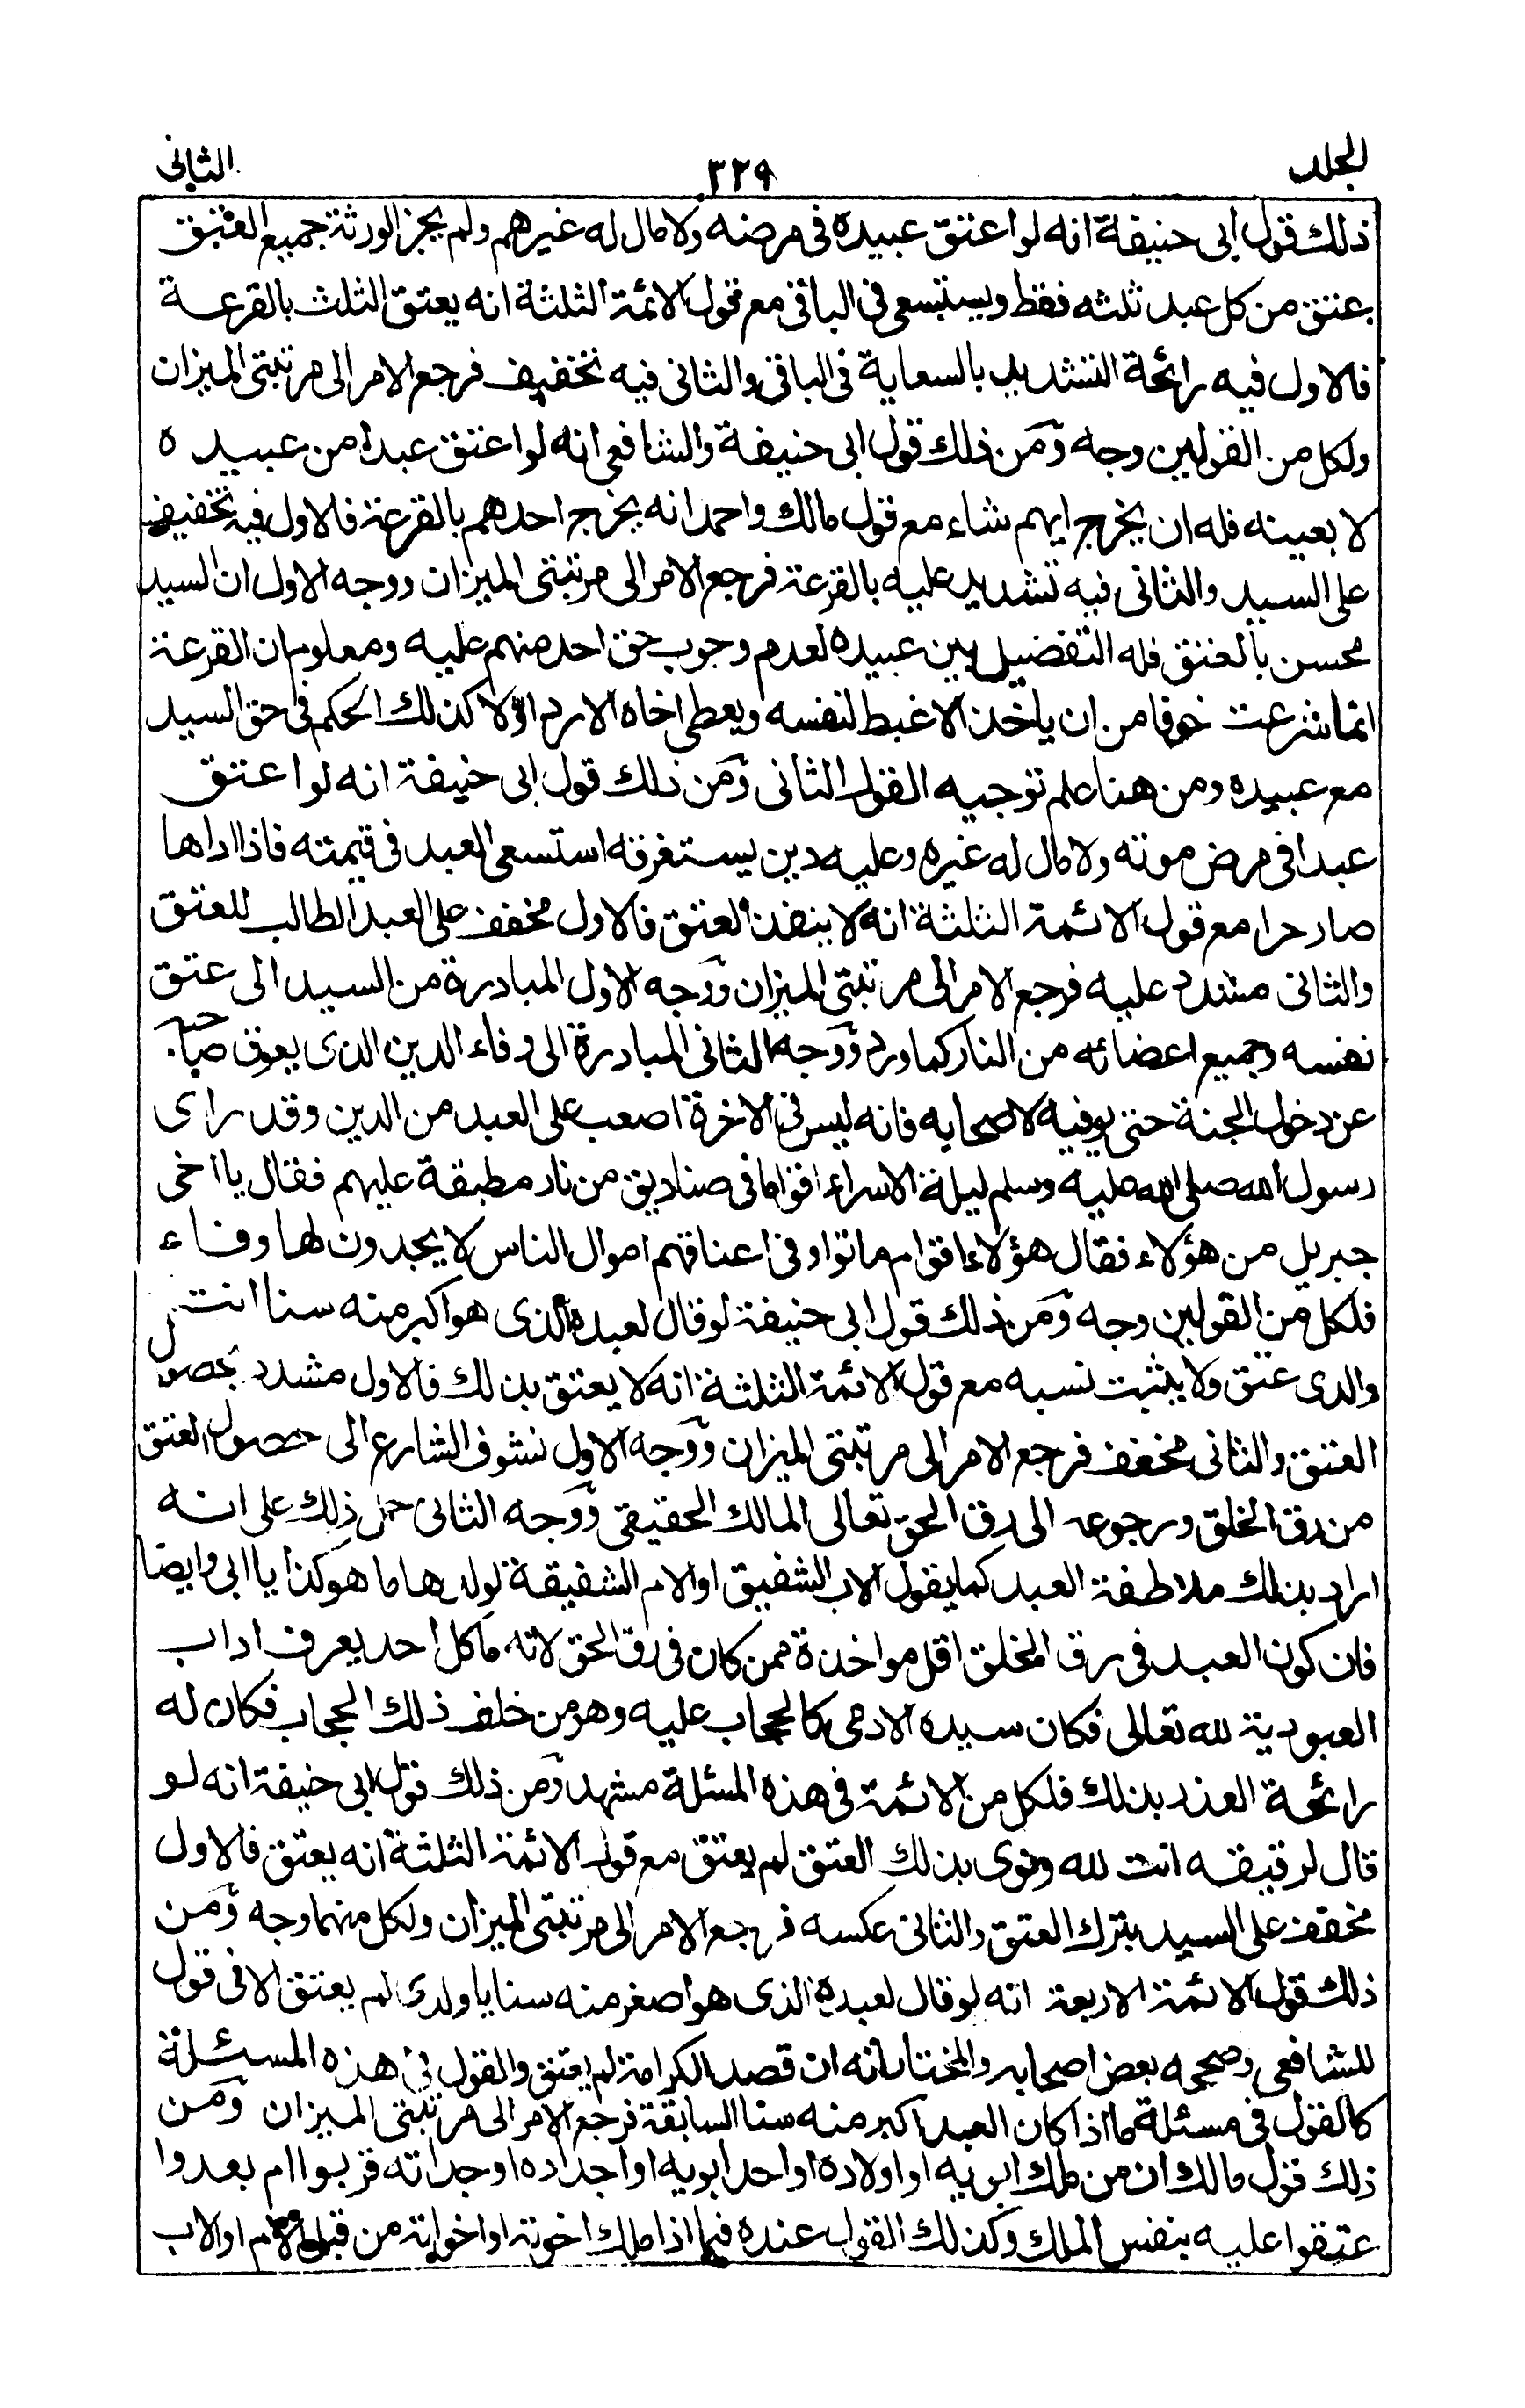 الجلد ٣٢٩ الثانى
ذلك قول ابى حنيفة انه لو اعتق عبيده فى مرضه ولا مال له غيرهم ولم يجز الورثة جميع العتق
عتق من كل عبد ثلثه فقط ويستسعى فى الباقى مع قول الائمة الثلثة انه يعتق الثلث بالقرعة
فالاول فيه رائحة التشديد بالسعاية فى الباقى والثانى فيه تخفيف فرجع الامر الى مرتبتى الميزان
ولكل من القولين وجه ومن ذلك قول ابى حنيفة والشافعى انه لو اعتق عبدا من عبيده
لا بعينه فله ان يخرج ايهم شاء مع قول مالك واحمد انه يخرج احدهم بالقرعة فالاول فيه تخفيف
على السيد والثانى فيه تشديد عليه بالقرعة فرجع الامر الى مرتبتى الميزان ووجه الاول ان السيد
محسن بالعتق فله التفضيل بين عبيده لعدم وجوب حق احد منهم عليه ومعلوم ان القرعة
انما شرعت خوفا من ان ياخذ الاغبط لنفسه ويعطى اخاه الاردا ولا كذلك الحكم فى حق السيد
مع عبيده ومن هنا علم توجيه القول الثانى ومن ذلك قول ابى حنيفة انه لو اعتق
عبدا فى مرض موته ولا مال له غيره وعليه دين يستغرقه استسعى العبد فى قيمته فاذا اداها
صار حرا مع قول الائمة الثلثة انه لا ينفذ العتق فالاول مخفف على العبد الطالب للعتق
والثانى مشدد عليه فرجع الامر الى مرتبتى الميزان ووجه الاول المبادرة من السيد الى عتق
نفسه وجميع اعضائه من النار كما ورد ووجه الثانى المبادرة الى وفاء الدين الذى يعوق صاحبه
عن دخول الجنة حتى يوفيه لاصحابه فانه ليس فى الاخرة اصعب على العبد من الدين وقد راى
رسول الله صلى الله عليه وسلم ليلة الاسراء اقواما فى صناديق من نار مطبقة عليهم فقال يا اخى
جبريل من هؤلاء فقال هؤلاء اقوام ماتوا وفى اعناقهم اموال الناس لا يجدون لها وفاء
فلكل من القولين وجه ومن ذلك قول ابى حنيفة لو قال لعبده الذى هو اكبر منه سنا انت
والدى عتق ولا يثبت نسبه مع قول الائمة الثلثة انه لا يعتق بذلك فالاول مشدد بحصول
العتق والثانى مخفف فرجع الامر الى مرتبتى الميزان ووجه الاول تشوف الشارع الى حصول العتق
من رق الخلق ورجوعه الى رق الحق تعالى المالك الحقيقى ووجه الثانى حمل ذلك على انه
اراد بذلك ملاطفة العبد كما يقول الاب الشفيق او الام الشفيقة لولدها ما هو كذا يا ابى وايضا
فان كون العبد فى رق الخلق اقل مواخذة ممن كان فى رق الحق لانه ما كل احد يعرف اداب
العبودية لله تعالى فكان سيده الادمى كالحجاب عليه وهو من خلف ذلك الحجاب فكان له
رائحة العذر بذلك فلكل من الائمة فى هذه المسئلة مشهد ومن ذلك قول ابى حنيفة انه لو
قال لرقيقه انت لله ونوى بذلك العتق لم يعتق مع قول الائمة الثلثة انه يعتق فالاول
مخفف على السيد بترك العتق والثانى عكسه فرجع الامر الى مرتبتى الميزان ولكل منهما وجه ومن
ذلك قول الائمة الاربعة انه لو قال لعبده الذى هو اصغر منه سنا يا ولدى لم يعتق الا فى قول
للشافعى وصححه بعض اصحابه والمختار انه ان قصد الكرامة لم يعتق والقول فى هذه المسئلة
كالقول فى مسئلة ما اذا كان العبد اكبر منه سنا السابقة فرجع الامر الى مرتبتى الميزان ومن
ذلك قول مالك ان من ملك ابويه او اولاده او احد ابويه او اجداده او جداته قربوا ام بعدوا
عتقوا عليه بنفس الملك وكذلك القول عنده فيما اذا ملك اخوته او اخواته من قبل الام او الاب